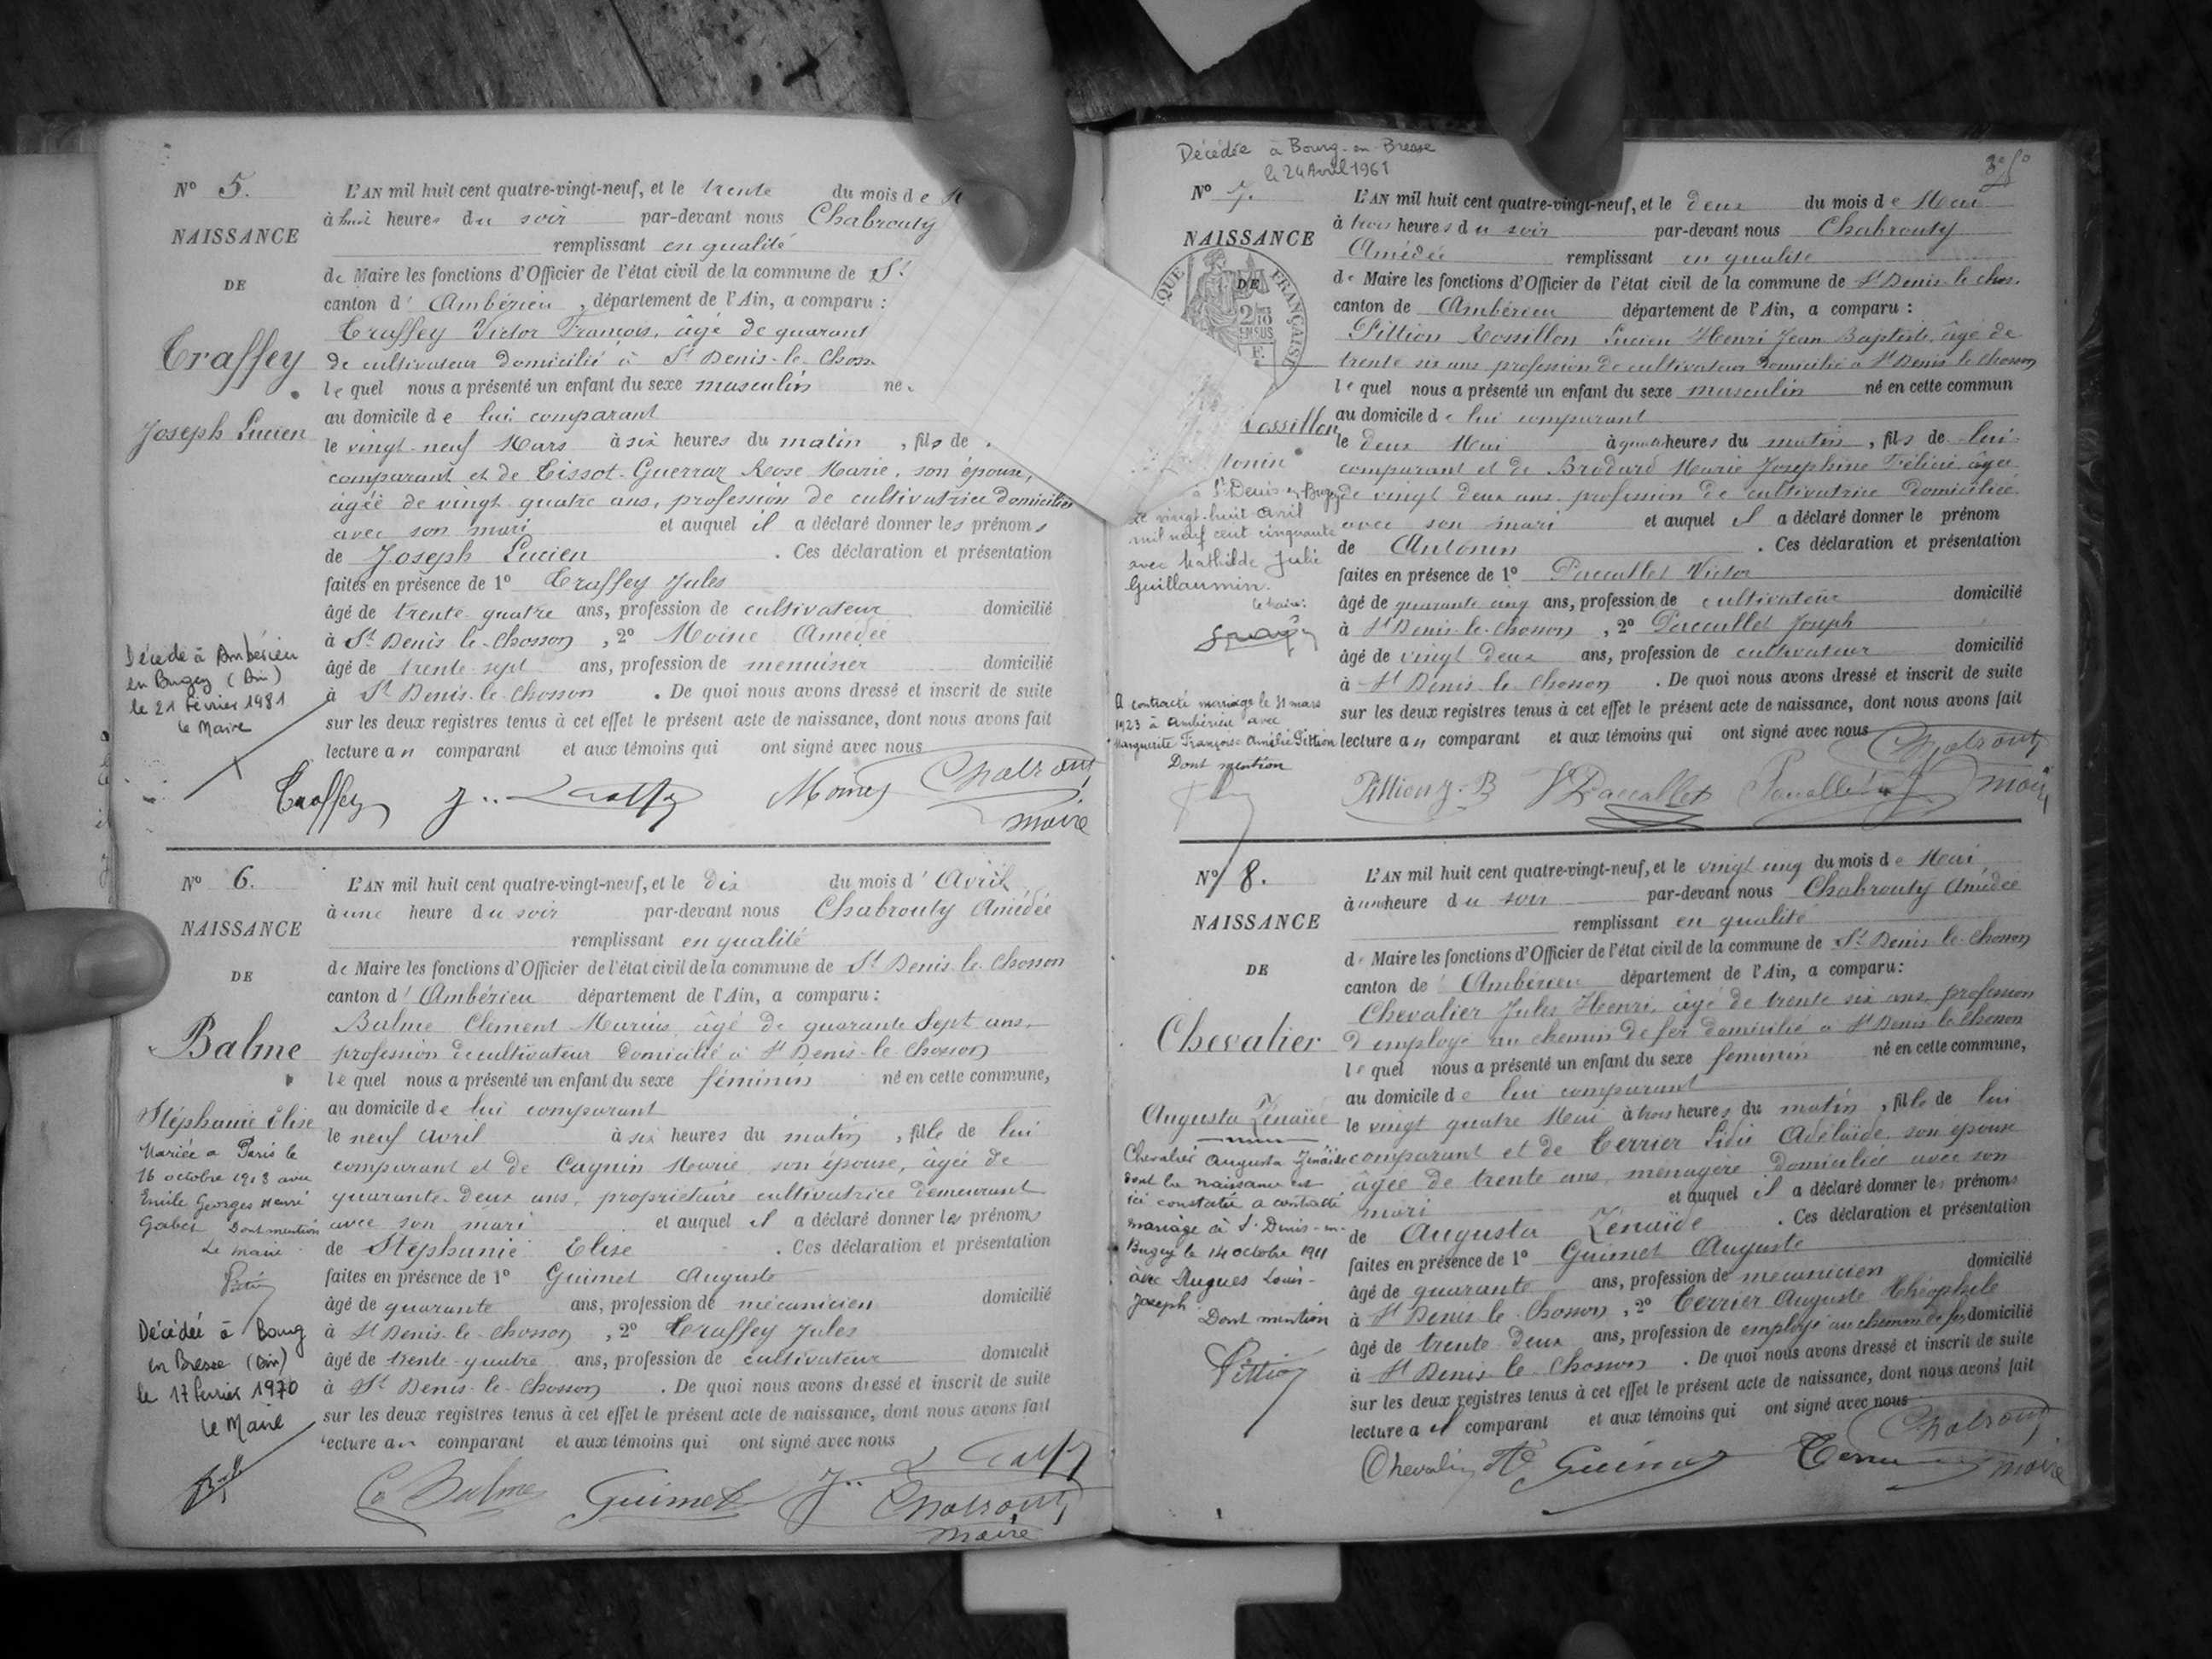 N° 5.
NAISSANCE
DE
Traffey
Joseph Lucien
Décédé à Ambérieu
en Bugey (Ain)
le 21 février 1981
le Maire
L'AN mil huit cent quatre-vingt-neuf, et le trente du mois de
à huit heures du soir par-devant nous Chabrouty
remplissant en qualité
de Maire les fonctions d'Officier de l'état civil de la commune de St
canton d' Ambérieu, département de l'Ain, a comparu :
Traffey Victor François, âgé de quarant
de cultivateur domicilié à St Denis-le-Choss
lequel nous a présenté un enfant du sexe masculin né
au domicile de lui comparant
le vingt-neuf Mars à six heures du matin, fils de
comparant et de Tissot-Guerraz Rose Marie, son épouse,
âgée de vingt quatre ans, profession de cultivatrice domiciliée
avec son mari et auquel il a déclaré donner les prénoms
de Joseph Lucien. Ces déclaration et présentation
faites en présence de 1° Traffey Jules
âgé de trente-quatre ans, profession de cultivateur domicilié
à St Denis-le-Chosson, 2° Moine Amédée
âgé de trente-sept ans, profession de menuisier domicilié
à St Denis-le-Chosson. De quoi nous avons dressé et inscrit de suite
sur les deux registres tenus à cet effet le présent acte de naissance, dont nous avons fait
lecture au comparant et aux témoins qui ont signé avec nous
Traffey Chabrouty
maire
N° 6.
NAISSANCE
DE
Balme
Stéphanie Elise
Mariée à Paris le
16 octobre 1913 avec
Emile Georges Henri
Gabet Dont mention
Le maire
Décédée à Bourg
en Bresse (Ain)
le 17 février 1970
le Maire
L'AN mil huit cent quatre-vingt-neuf, et le dix du mois d'Avril
à une heure du soir par-devant nous Chabrouty Amédée
remplissant en qualité
de Maire les fonctions d'Officier de l'état civil de la commune de St Denis-le-Chosson
canton d'Ambérieu département de l'Ain, a comparu :
Balme Clément Marius âgé de quarante sept ans,
profession de cultivateur domicilié à St Denis-le-Chosson
lequel nous a présenté un enfant du sexe féminin né en cette commune,
au domicile de lui comparant
le neuf avril à six heures du matin, fille de lui
comparant et de Cagnin Marie son épouse, âgée de
quarante-deux ans, propriétaire cultivatrice demeurant
avec son mari et auquel il a déclaré donner les prénoms
de Stéphanie Elise. Ces déclaration et présentation
faites en présence de 1° Guimet Auguste
âgé de quarante ans, profession de mécanicien domicilié
à St Denis-le-Chosson, 2° Traffey Jules
âgé de trente-quatre ans, profession de cultivateur domicilié
à St Denis-le-Chosson. De quoi nous avons dressé et inscrit de suite
sur les deux registres tenus à cet effet le présent acte de naissance, dont nous avons fait
lecture au comparant et aux témoins qui ont signé avec nous
Balme Guimet Chabrouty
maire
Décédée à Bourg-en-Bresse
le 24 Avril 1961
N° 7.
NAISSANCE
DE
FRANÇAISE
Rossillon
tonin
à St Denis en Bugey
le vingt-huit avril
mil neuf cent cinquante
avec Mathilde Julie
Guillaumin.
le maire:
A contracté mariage le 31 mars
1923 à Ambérieu avec
Marguerite Françoise Amélie Pittion
Dont mention
L'AN mil huit cent quatre-vingt-neuf, et le deux du mois de Mai
à trois heures du soir par-devant nous Chabrouty
Amédée remplissant en qualité
de Maire les fonctions d'Officier de l'état civil de la commune de St Denis-le-Chos.
canton de Ambérieu département de l'Ain, a comparu :
Pittion Rossillon Lucien Henri Jean Baptiste âgé de
trente six ans profession de cultivateur domicilié à St Denis le Chosson
lequel nous a présenté un enfant du sexe masculin né en cette commun
au domicile de lui comparant
le deux Mai à quatre heures du matin, fils de lui
comparant et de Brodard Marie Joséphine Félicie âgée
de vingt deux ans profession de cultivatrice domiciliée
avec son mari et auquel il a déclaré donner le prénom
de Antonin. Ces déclaration et présentation
faites en présence de 1° Paccallet Victor
âgé de quarante cinq ans, profession de cultivateur domicilié
à St Denis-le-Chosson, 2° Paccallet Joseph
âgé de vingt deux ans, profession de cultivateur domicilié
à St Denis-le-Chosson. De quoi nous avons dressé et inscrit de suite
sur les deux registres tenus à cet effet le présent acte de naissance, dont nous avons fait
lecture au comparant et aux témoins qui ont signé avec nous
Pittion J-B V Paccallet Chabrouty
maire
N° 8.
NAISSANCE
DE
Chevalier
Augusta Zénaïde
Chevalier Augusta Zénaïde
dont la naissance est
ici constatée a contracté
mariage à St Denis-en-
Bugey le 14 octobre 1911
avec Augues Louis-
Joseph
Dont mention
Pittion
L'AN mil huit cent quatre-vingt-neuf, et le vingt cinq du mois de Mai
à une heure du soir par-devant nous Chabrouty Amédée
remplissant en qualité
de Maire les fonctions d'Officier de l'état civil de la commune de St Denis-le-Chosson
canton de Ambérieu département de l'Ain, a comparu:
Chevalier Jules Henri, âgé de trente six ans, profession
d'employé au chemin de fer domicilié à St Denis le Chosson
lequel nous a présenté un enfant du sexe féminin né en cette commune,
au domicile de lui comparant
le vingt quatre Mai à trois heures du matin, fille de lui
comparant et de Terrier Lidie Adélaïde son épouse
âgée de trente ans, ménagère domiciliée avec son
mari et auquel il a déclaré donner les prénoms
de Augusta Zénaïde. Ces déclaration et présentation
faites en présence de 1° Guimet Auguste
âgé de quarante ans, profession de mécanicien domicilié
à St Denis-le-Chosson, 2° Terrier Auguste Théophile
âgé de trente deux ans, profession de employé au chemin de fer domicilié
à St Denis le Chosson. De quoi nous avons dressé et inscrit de suite
sur les deux registres tenus à cet effet le présent acte de naissance, dont nous avons fait
lecture au comparant et aux témoins qui ont signé avec nous
Chevalier Guimet Chabrouty
maire